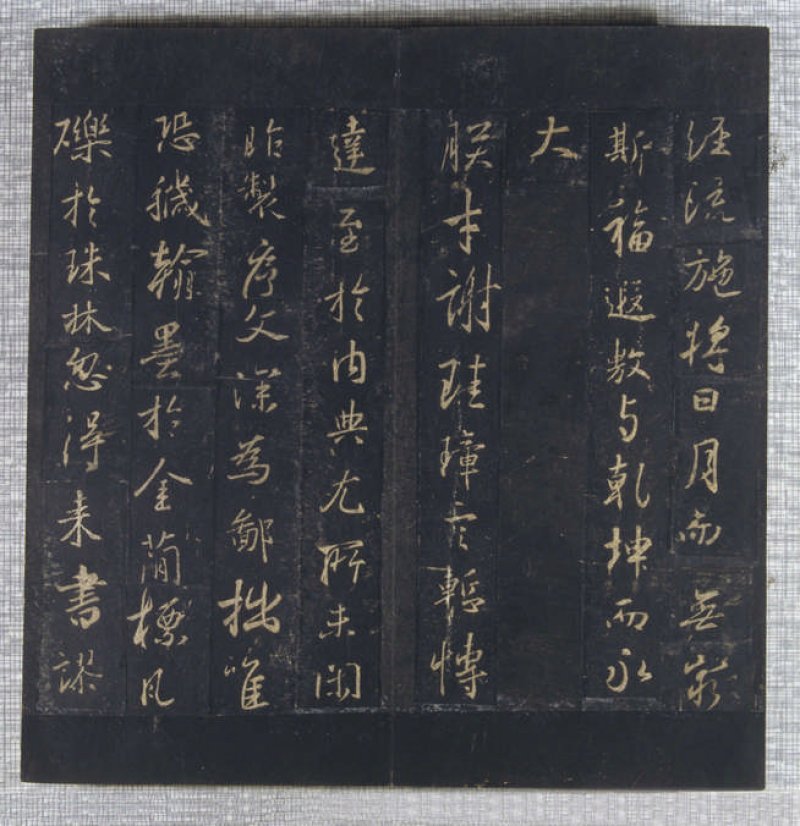 經流施將日月而無窮
斯福遐敷与乾坤而永
大
朕才謝珪璋言慙博
達至於內典尤所未閑
昨製序文深為鄙拙唯
恐穢翰墨於金簡標瓦
礫於珠林忽得來書謬